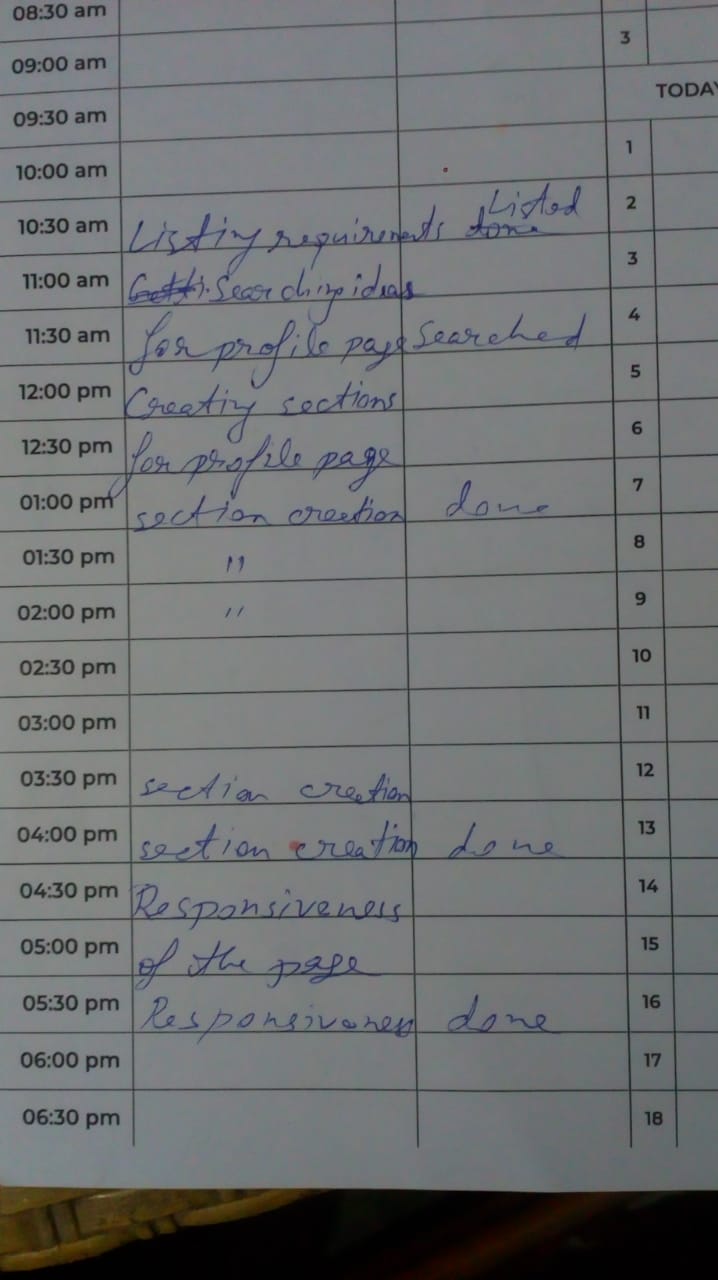 08:30 am
3
09:00 am
TODAY
09:30 am
1
10:00 am
2
10:30 am Listing requirements done Listed
3
11:00 am Searching ideas
4
11:30 am for profile page Searched
5
12:00 pm Creating sections
6
12:30 pm for profile page
7
01:00 pm section creation done
8
01:30 pm "
9
02:00 pm "
10
02:30 pm
11
03:00 pm
12
03:30 pm section creation
13
04:00 pm section creation done
14
04:30 pm Responsiveness
15
05:00 pm of the page
16
05:30 pm Responsiveness done
17
06:00 pm
18
06:30 pm